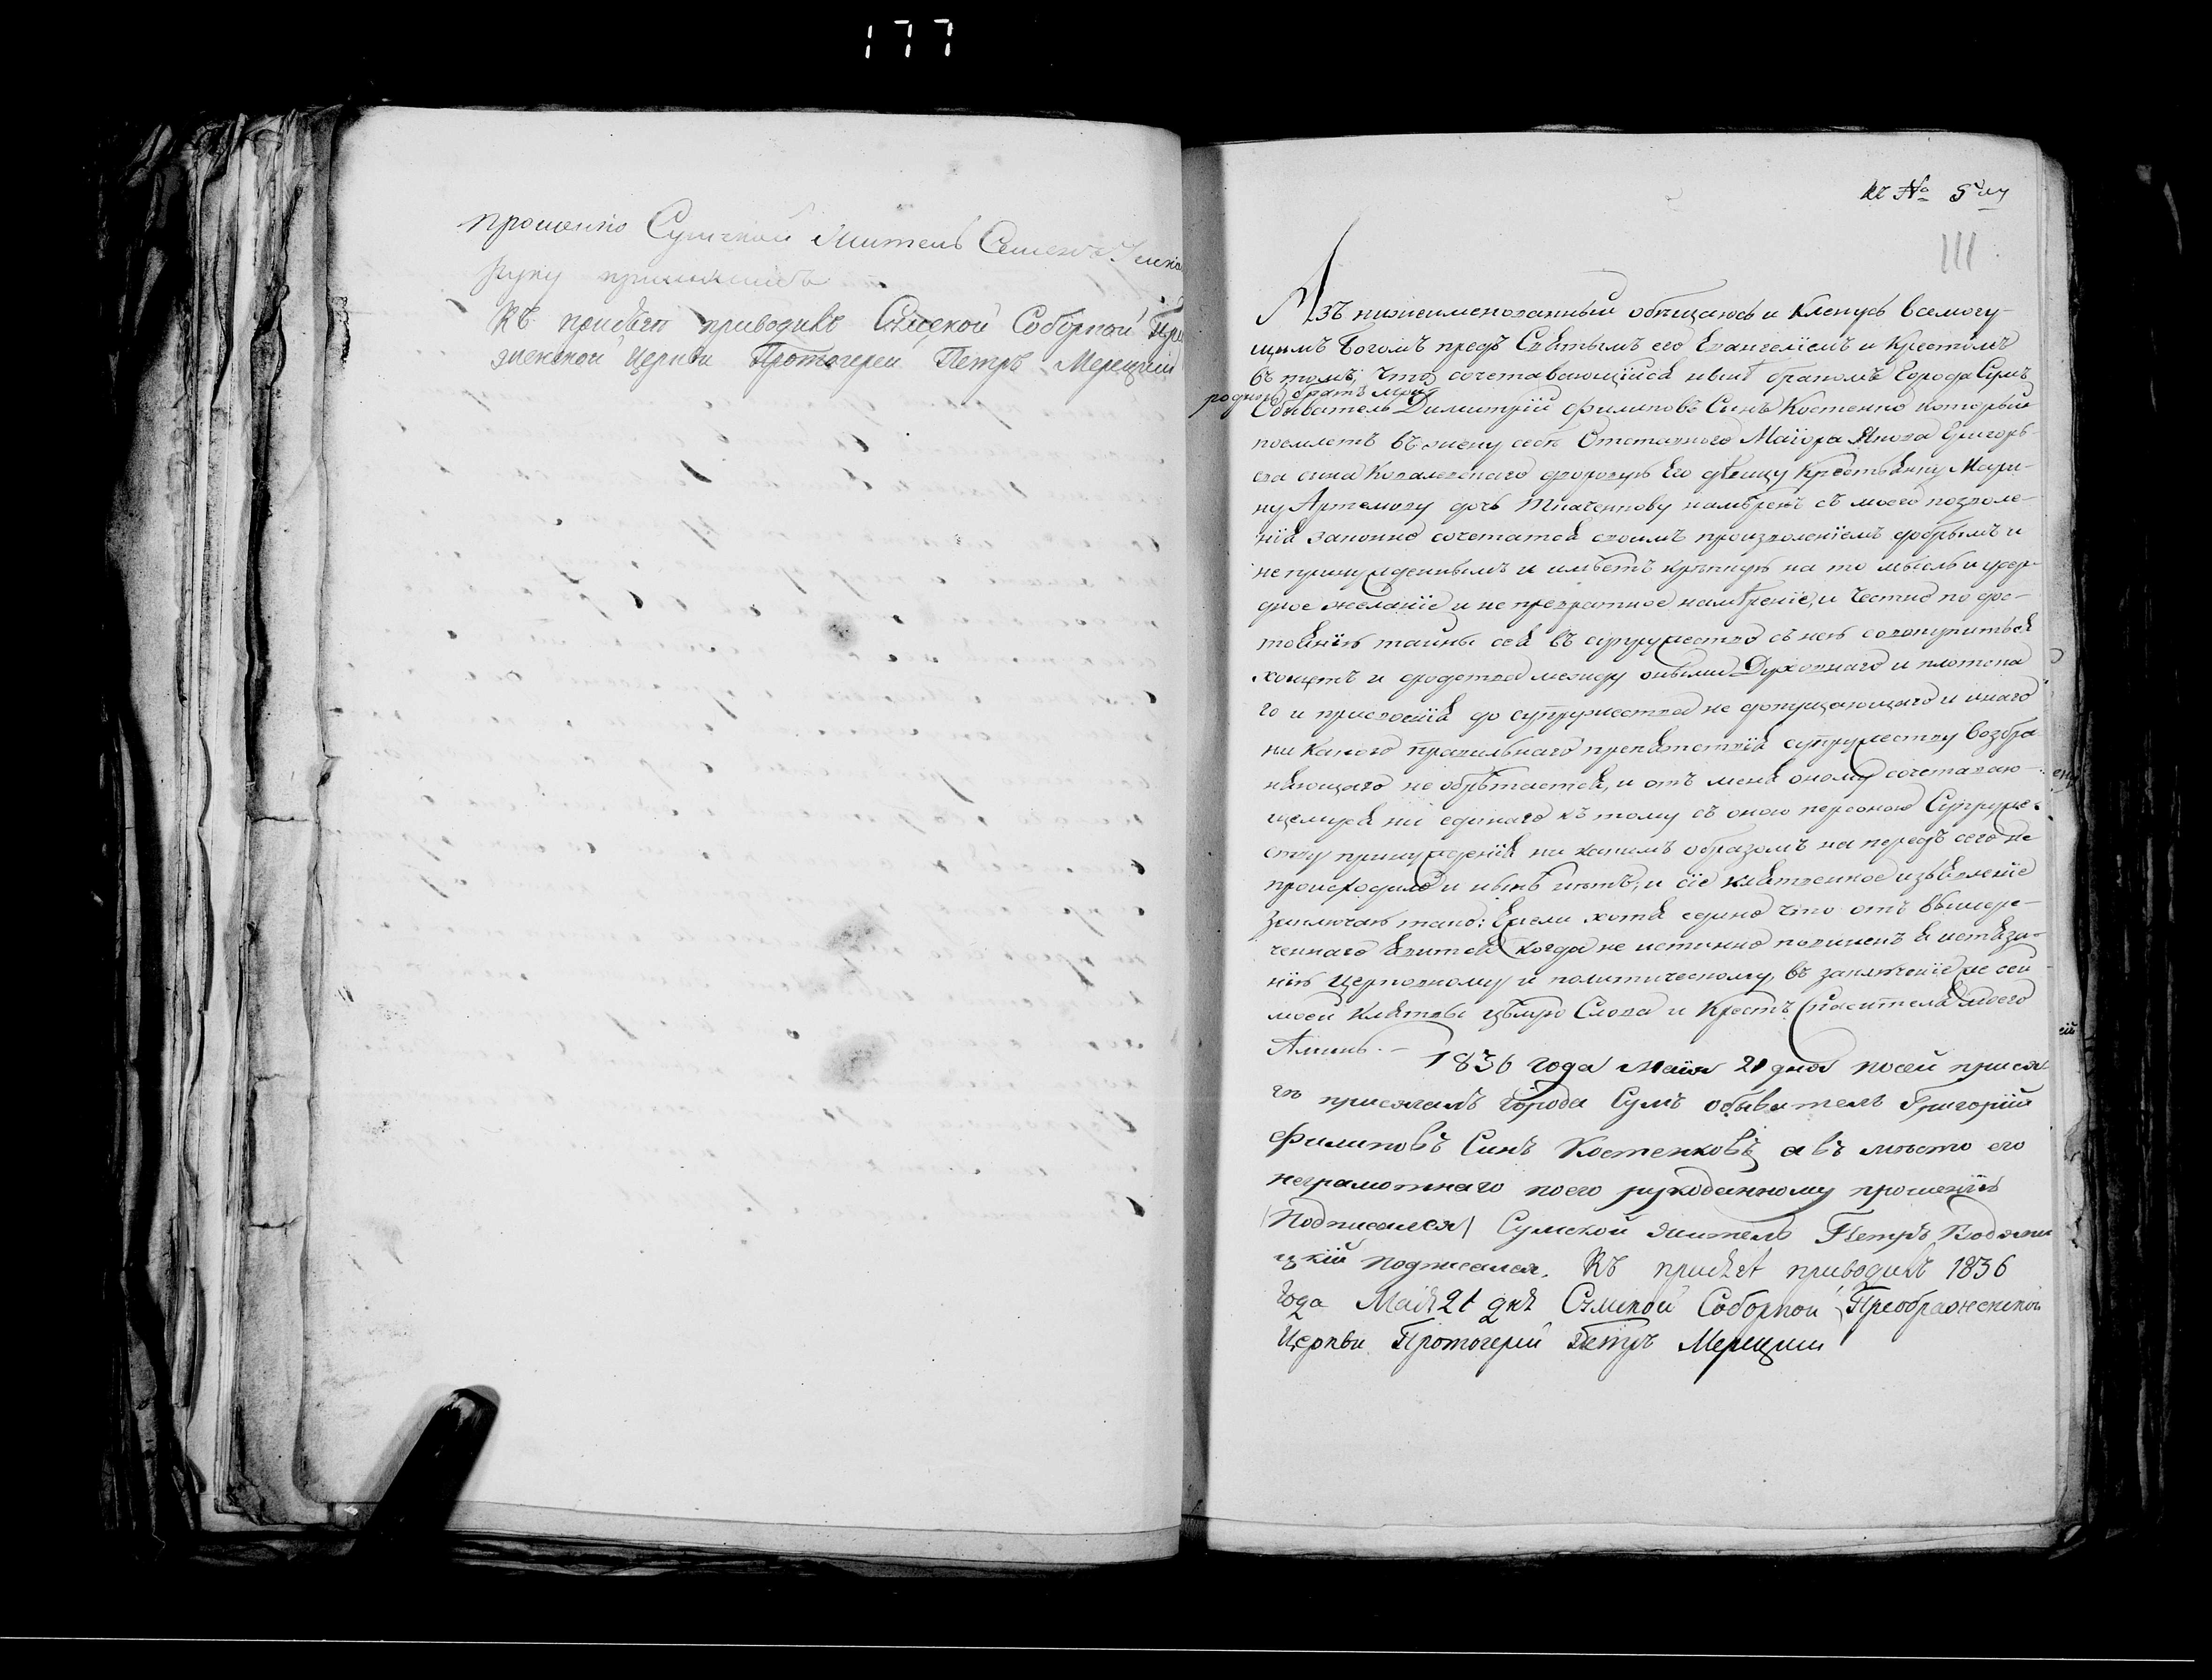 177
прошенію Сумской житель Семенъ
руку приложилъ
Къ присягѣ приводилъ Сумской Соборной Пре
женской Церкви Протоіерей Петръ Мерецкій
къ № 5му
111
Азъ нижеименованный обѣщаюсь и Кленусь всемогу-
щимъ Богомъ предъ Святымъ его Евангеліемъ и Крестомъ
въ томъ, что сочетавающійся нынѣ бракомъ города Сумъ
родной братъ мой
Обыватель Димитрій Филиповъ Сынъ Костенко который
поемлетъ въ жену себѣ Отставного Маіора Якова Григорь-
ева сына Ковалевскаго дворовую Его дѣвицу Крестьянку Мари-
ну Артемову дочь Ткаченкову намѣренъ съ моего позволе-
нія законно сочетатся своимъ произволеніемъ добрымъ и
непринужденнымъ и имѣетъ крѣпкую на то мысль и усер-
дное желаніе и не превратное намѣреніе, и Честно по дос-
тоянію тайны сея въ супружество съ нею совокупиться
хощетъ и сродства между оными Духовнаго и плотска
го и присвоенія до супружества не допущающаго и инаго
ни какого правильнаго препятствія супружеству возбра
няющаго не обрѣтается, и отъ меня оному сочетаваю-
щемуся ни единаго къ тому съ оною персоною Супруже-
ству принужденія ни какимъ образомъ на передъ сего не
происходило и нынѣ нѣтъ, и сіе клятвенное изъявленіе
заключаю тако: Ежели хотя едино что отъ вышере-
ченнаго явится когда не истинно повиненъ я истяза-
нію церковному и политическому, въ заключеніе же сей
моей клятвы цѣлую Слова и Крестъ Спасителя моего
Аминь. - 1836 года Маія 21 дня посей прися
гѣ присягалъ города Сумъ обыватель Григорій
Филиповъ Синъ Костенковъ а въ место его
неграмотнаго поего рукоданному прошенію
(Подписался) Сумской житель Петръ
цкій подписался. Къ присягѣ приводилъ 1836
года Маія 21 дня Сумской Соборной Преображенской
Церкви Протоіерей Петръ Мерецкій